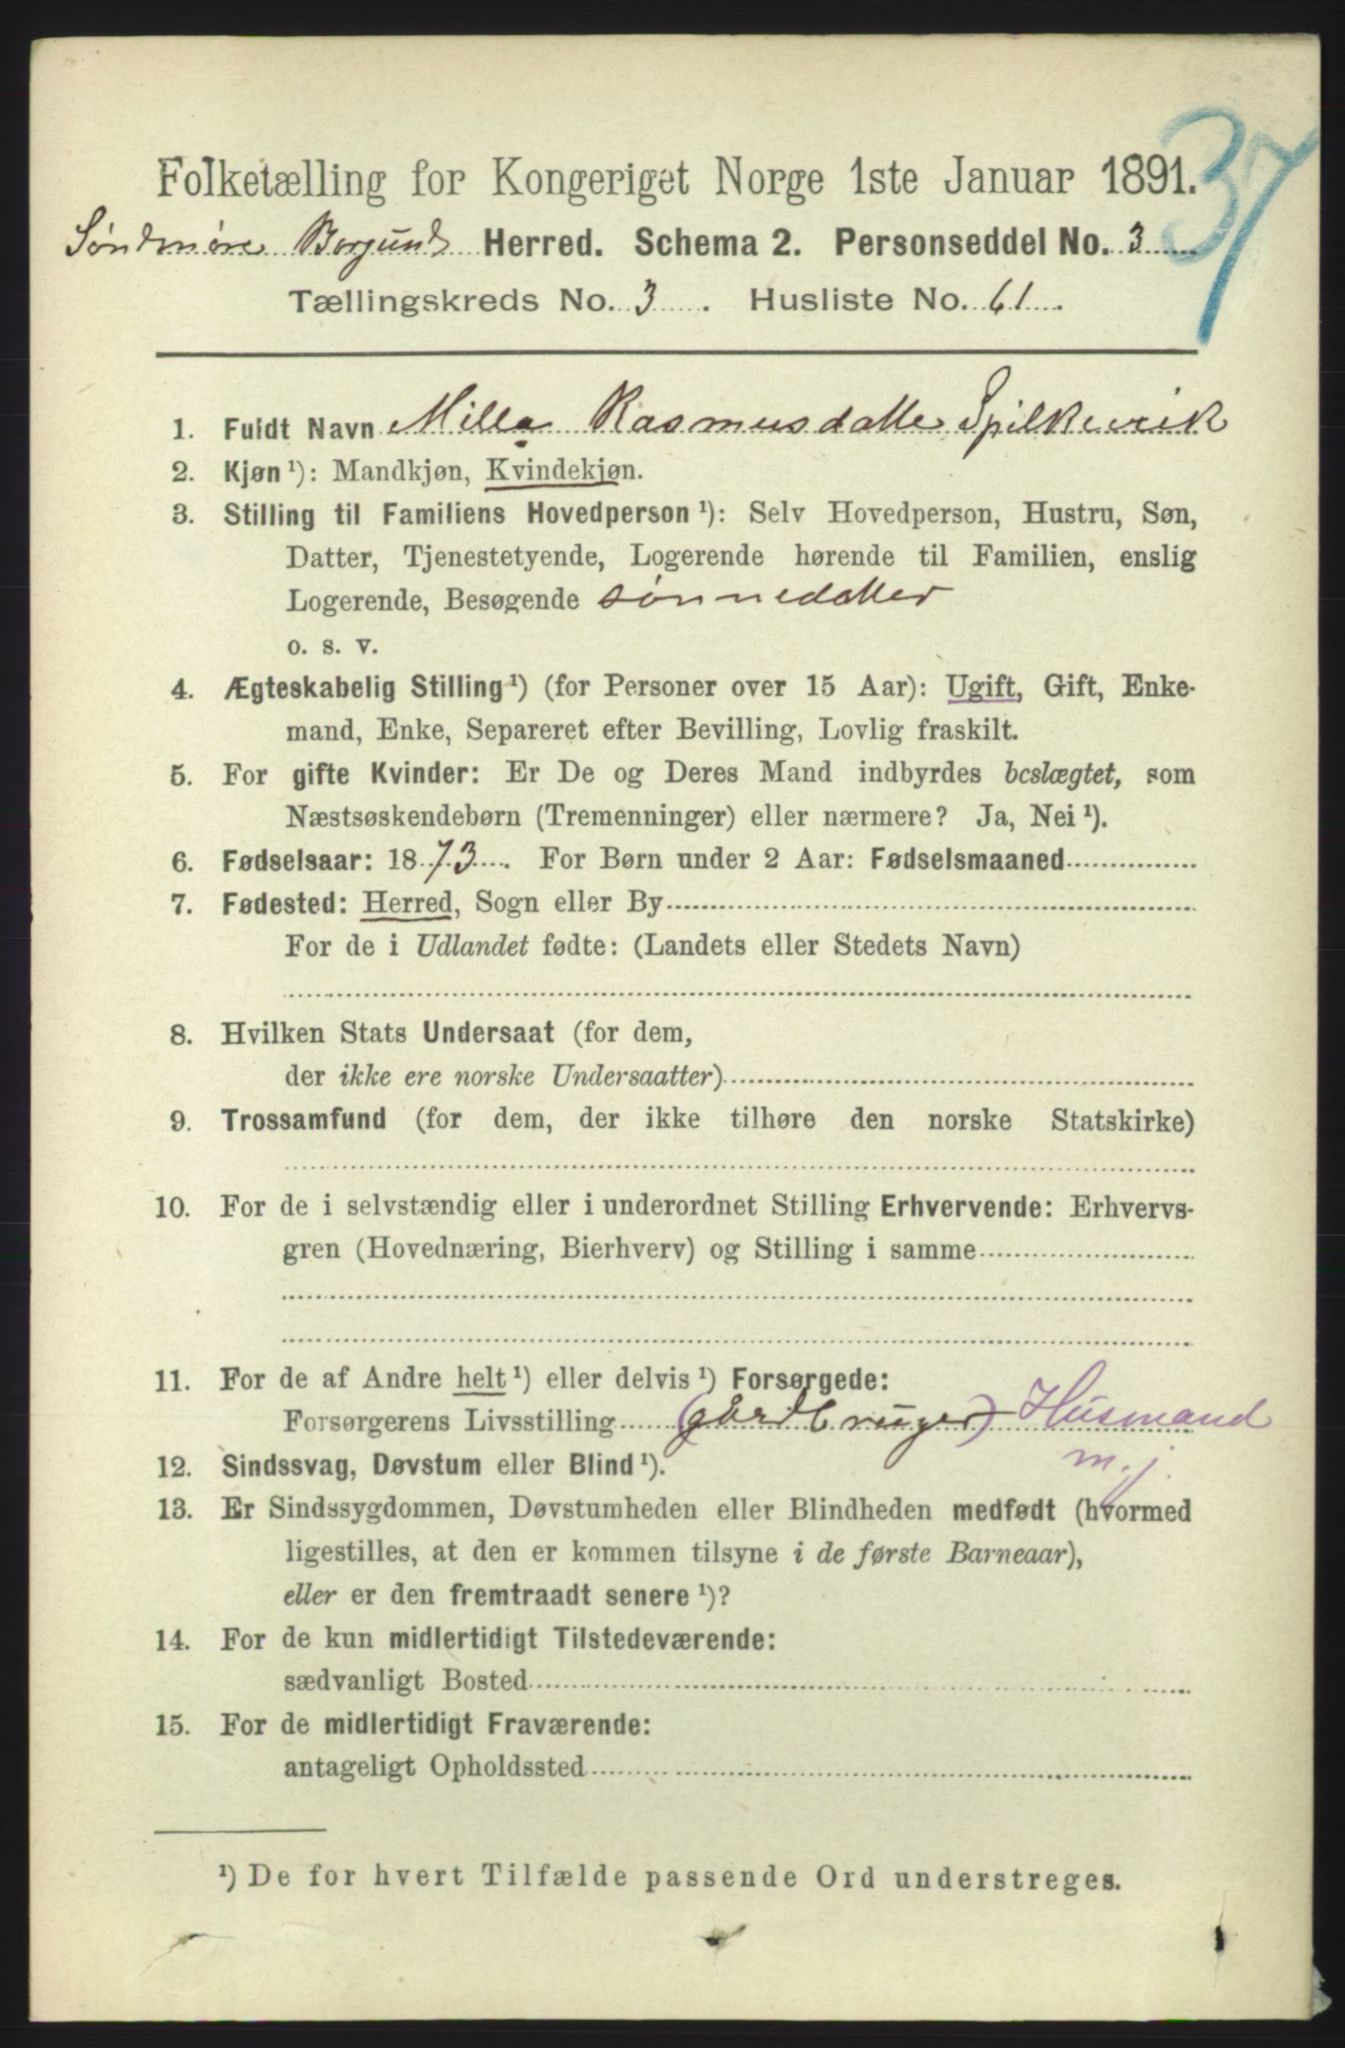 37
Folketælling for Kongeriget Norge 1ste Januar 1891.
Søndmøre Borgund Herred. Schema 2. Personseddel No. 3
Tællingskreds No. 3. Husliste No. 61.
1. Fuldt Navn Milla Rasmusdatter Spilkevik
2. Kjøn ¹): Mandkjøn, Kvindekjøn.
3. Stilling til Familiens Hovedperson ¹): Selv Hovedperson, Hustru, Søn,
Datter, Tjenestetyende, Logerende hørende til Familien, enslig
Logerende, Besøgende sønnedatter
o. s. v.
4. Ægteskabelig Stilling ¹) (for Personer over 15 Aar): Ugift, Gift, Enke-
mand, Enke, Separeret efter Bevilling, Lovlig fraskilt.
5. For gifte Kvinder: Er De og Deres Mand indbyrdes beslægtet, som
Næstsøskendebørn (Tremenninger) eller nærmere? Ja, Nei ¹).
6. Fødselsaar: 1873. For Børn under 2 Aar: Fødselsmaaned
7. Fødested: Herred, Sogn eller By
For de i Udlandet fødte: (Landets eller Stedets Navn)
8. Hvilken Stats Undersaat (for dem,
der ikke ere norske Undersaatter)
9. Trossamfund (for dem, der ikke tilhøre den norske Statskirke)
10. For de i selvstændig eller i underordnet Stilling Erhvervende: Erhvervs-
gren (Hovednæring, Bierhverv) og Stilling i samme
11. For de af Andre helt ¹) eller delvis ¹) Forsørgede:
Forsørgerens Livsstilling (gårdbruger) Husmand
m. j.
12. Sindssvag, Døvstum eller Blind ¹).
13. Er Sindssygdommen, Døvstumheden eller Blindheden medfødt (hvormed
ligestilles, at den er kommen tilsyne i de første Barneaar),
eller er den fremtraadt senere ¹)?
14. For de kun midlertidigt Tilstedeværende:
sædvanligt Bosted
15. For de midlertidigt Fraværende:
antageligt Opholdssted
¹) De for hvert Tilfælde passende Ord understreges.